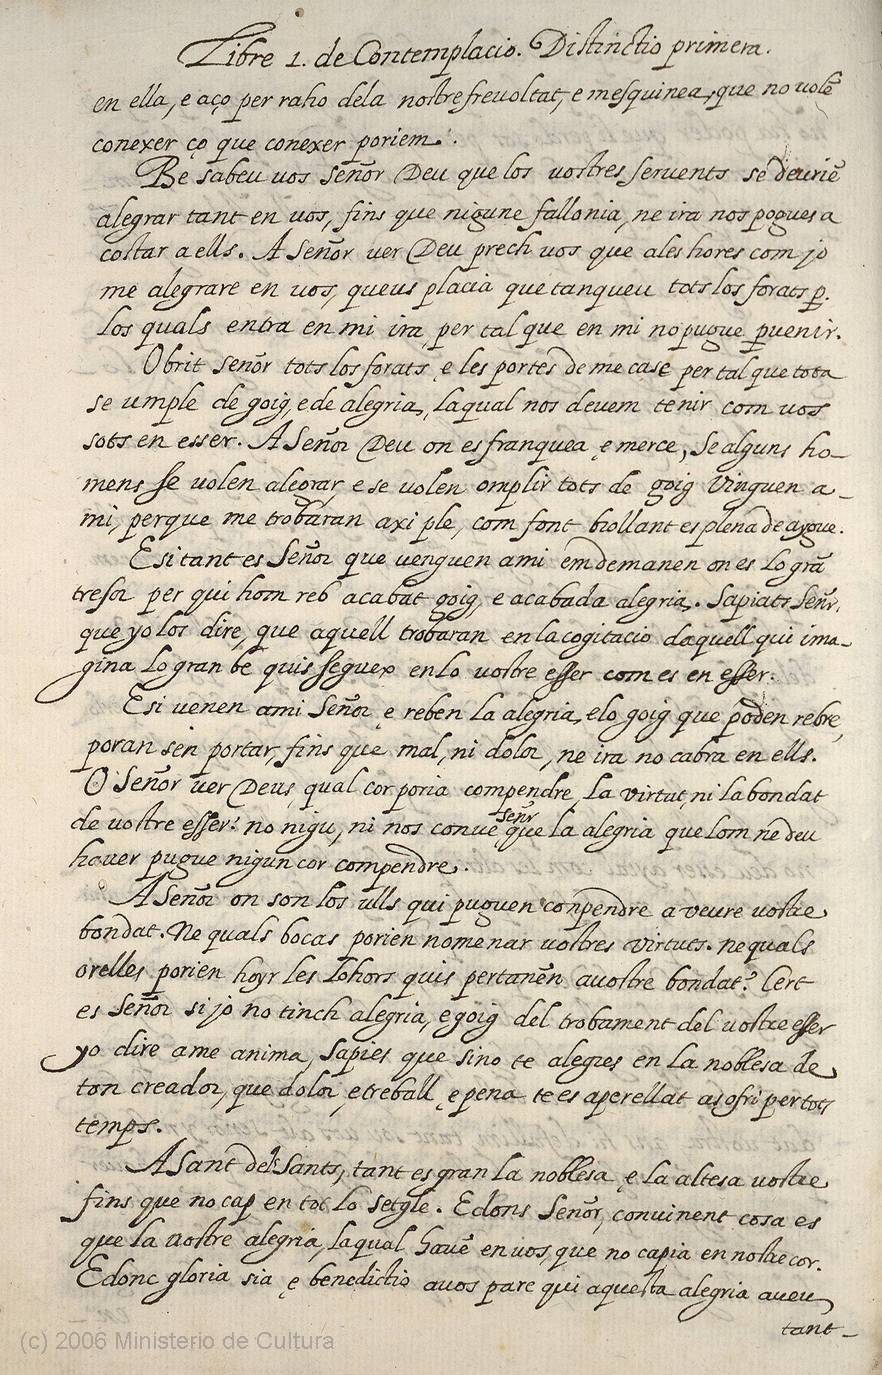 Libre 1. de Contemplacio. Distinctio primera.
en ella, e aço per raho dela nostre freuoltat, e mesquinea, que no volẽ
conexer ço que conexer poriem.
Be sabeu vos Señor Deu que los vostres seruents se deuriẽ
alegrar tant en vos, fins que nigune fallonia, ne ira nos pogues a
costar a ells. A Señor uer Deu prech vos que ales hores com jo
me alegrare en vos, queus placia que tanqueu tots los forats p.
los quals entra en mi ira, per tal que en mi no pugue puenir.
Obrit señor tots los forats e les portes de me case per tal que tota
se umple de goig, e de alegria, laqual nos deuem tenir com vos
sots en esser. A Señor Deu on es franquea e merce, Se alguns ho-
mens se volen alegrar, e se volen omplir tots de goig vinguen a-
mi, perque me trobaran axi ple, com font brollant es plena de aygue.
E si tant es Señor que venguen ami em demanen on es lo grã
tresor per qui hom reb acabat goig, e acabada alegria. Sapiats Señr,
que yo los dire, que aquell trobaran en la cogitacio daquell qui ima-
gina lo gran be quis seguex en lo vostre esser com es en esser.
E si venen ami Señor e reben la alegria, e lo goig que poden rebre,
poran sen portar, fins que mal, ni dolor, ne ira no cabra en ells.
O Señor uer Deus, qual cor poria compendre, la virtut, ni la bondat
de vostre esser? no nigu, ni nos conue señr que la alegria que lom ne deu
hauer pugue nigun cor compendre.
A Señor on son los ulls qui puguen conpendre a veure vostre
bondat. Ne quals bocas porien nomenar vostres virtuts. ne quals
orelles porien hoyr les lohors quis pertanẽn a vostre bondat? Cert
es Señor si jo no tinch alegria, e goig del trobament del vostre esser
yo dire a me anima, sapies que sino te alegres en la noblesa de
ton creador, que dolor, e treball, e pena te es aperellat a sofri per tots
temps.
A Sant dels Sants, tant es gran la noblesa e la altesa vostre
fins que no cap en tot lo setgle. E dons Señor, conuinent cosa es
que la nostre alegria, laqual hauẽ en vos, que no capia en nostre cor.
E donc gloria sia e benedictio a vos pare qui aquesta alegria aueu
tant-
(c) 2006 Ministerio de Cultura